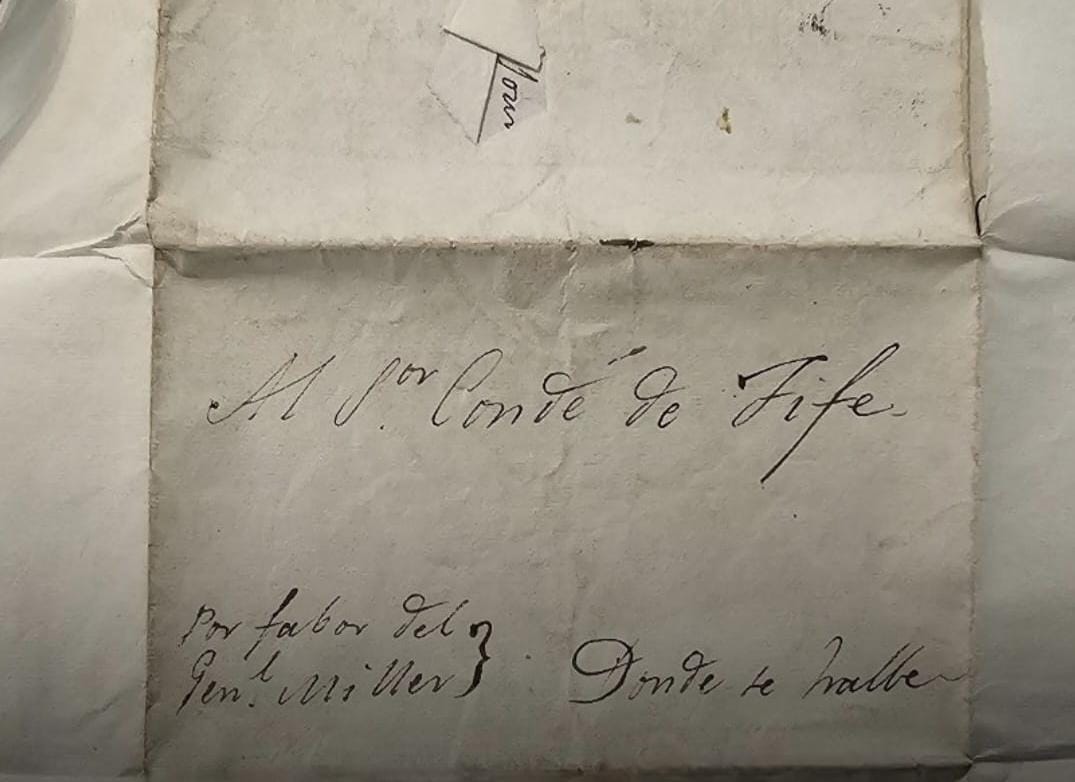 Al S.or Conde de Fife.
Por fabor del
Gen.l Miller }
Donde se halle